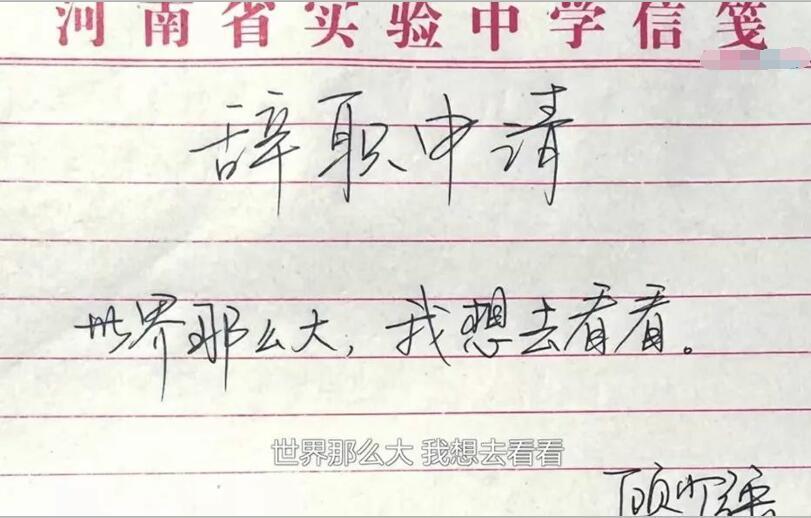 河南省实验中学信笺
辞职申请
世界那么大，我想去看看。
世界那么大 我想去看看
顾少强